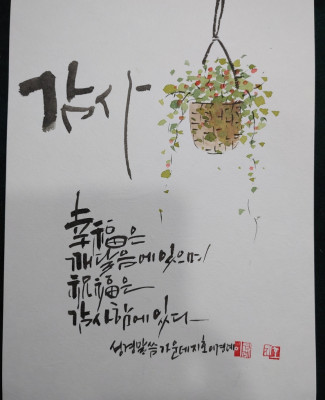 감사
幸福은
깨달음에 있으며
祝福은
감사함에 있다
성경말씀 가운데 지초 이경예